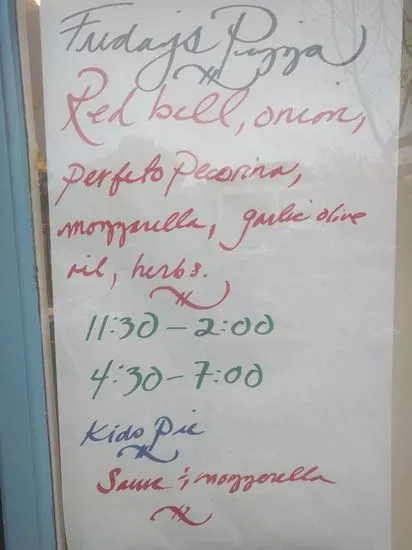 Fridays Pizza
Red bell, onion,
perfeto Pecorina,
mozzarella, garlic olive
oil, herbs.
11:30 - 2:00
4:30 - 7:00
Kids Pie
Sauce & mozzerella